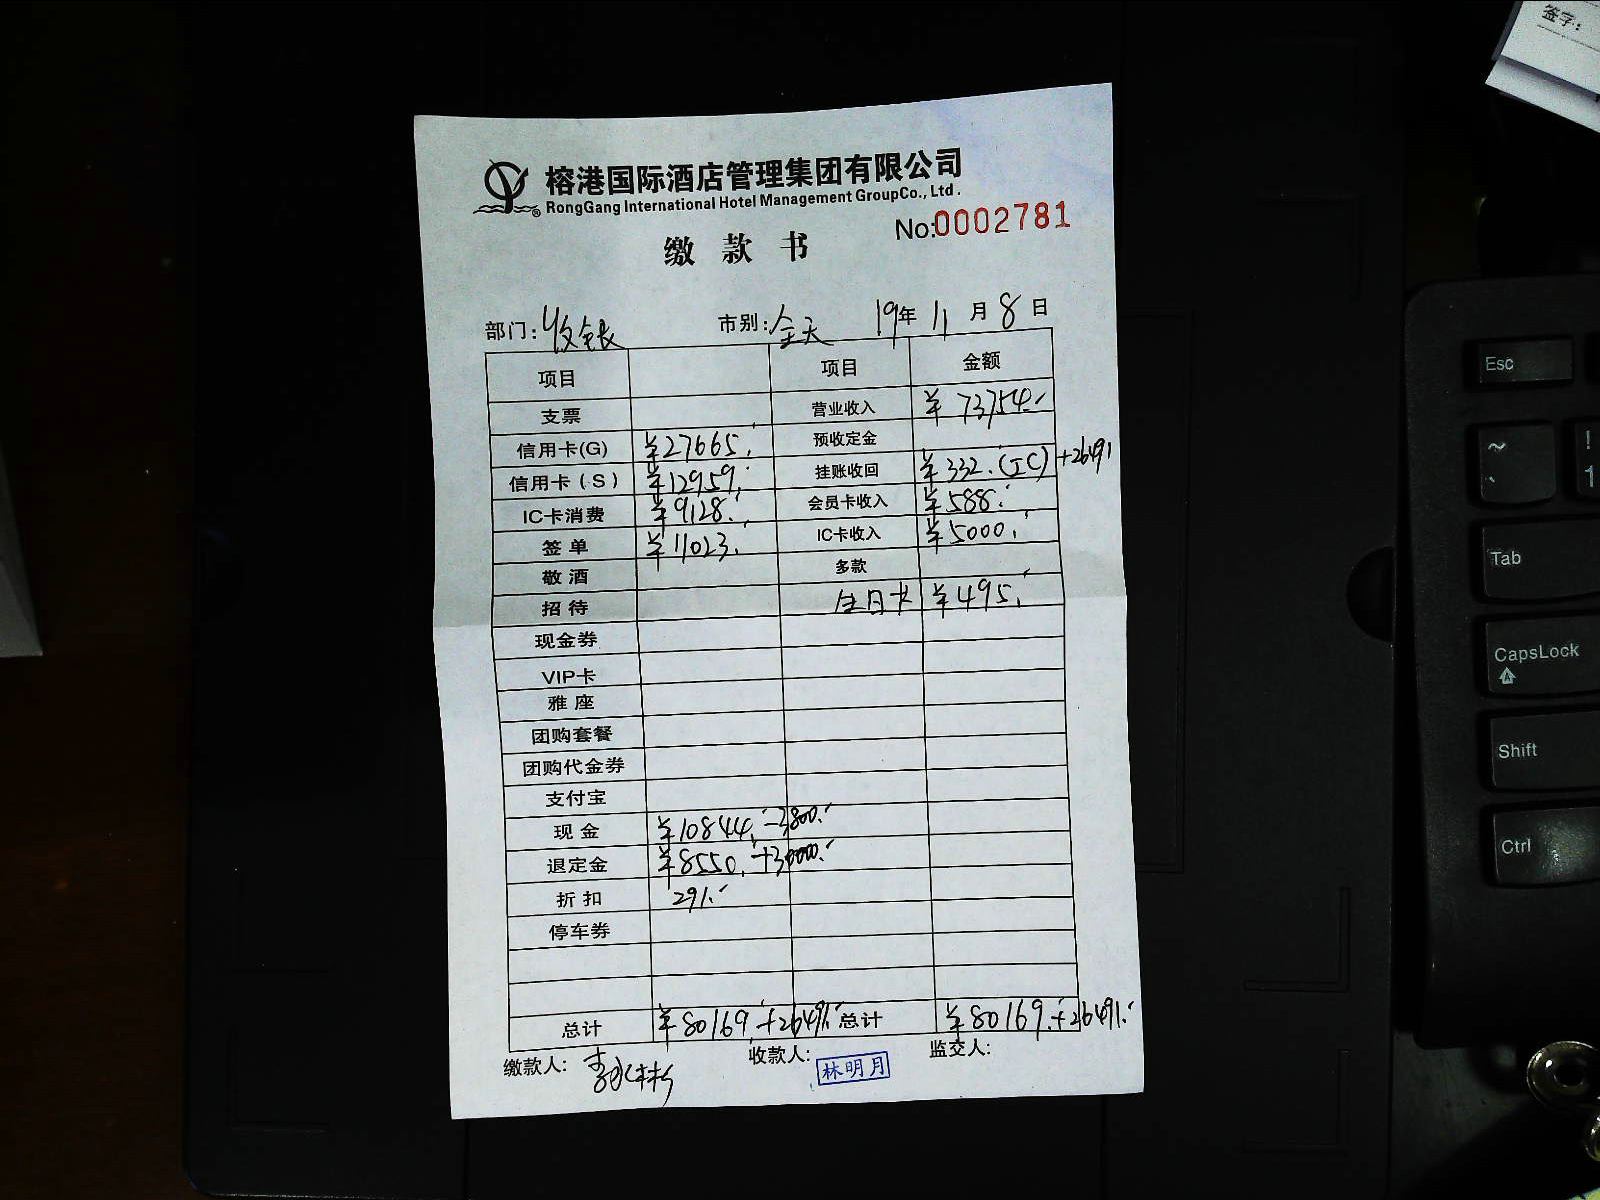 签字:
榕港国际酒店管理集团有限公司
RongGang International Hotel Management GroupCo., Ltd.
No:0002781
缴款书
部门: 收银 市别: 全天 19年 11月 8日
项目 项目 金额
支票 营业收入 ¥73754.-
信用卡(G) ¥27665.- 预收定金
信用卡(S) ¥12959.- 挂账收回 ¥332.(IC)+26491
IC卡消费 ¥9128.- 会员卡收入 ¥588.-
签单 ¥11023.- IC卡收入 ¥5000.-
敬酒 多款
招待 生日卡 ¥495.-
现金券
VIP卡
雅座
团购套餐
团购代金券
支付宝
现金 ¥10844.-
退定金 ¥8550.-
折扣 291.-
停车券
总计 ¥80169.+26491.- 总计 ¥80169.+26491.-
缴款人: 收款人: 林明月 监交人:
Esc
~
!
1
Tab
CapsLock
Shift
Ctrl